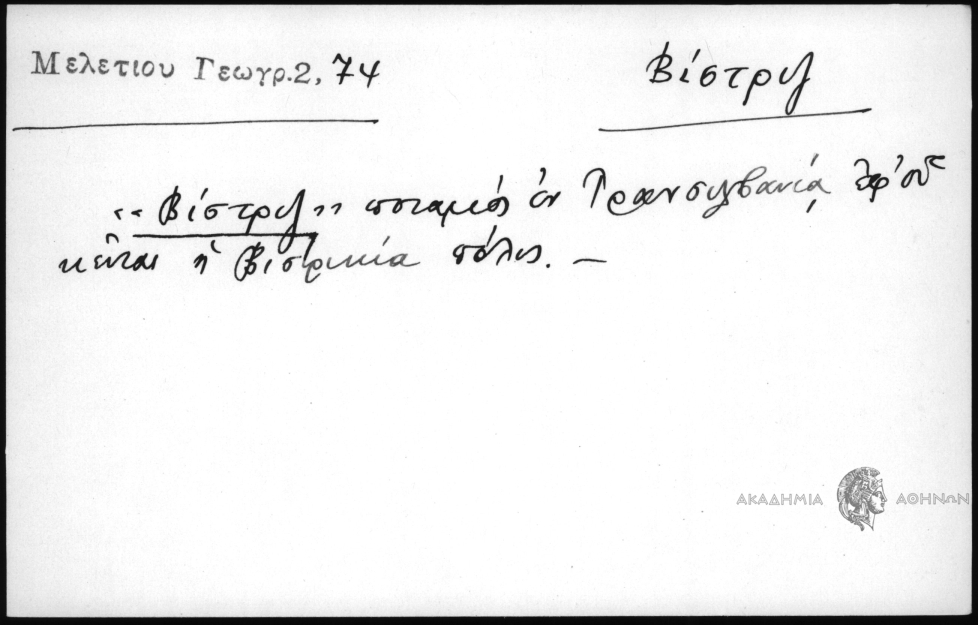 Μελετιου Γεωγρ.2, 74
Βίστριζ
«Βίστριζ» ποταμός ἐν Τρανσιλβανίᾳ, ἐφ' οὗ
κεῖται ἡ Βιστρικία πόλις. —
ΑΚΑΔΗΜΙΑ ΑΘΗΝΩΝ